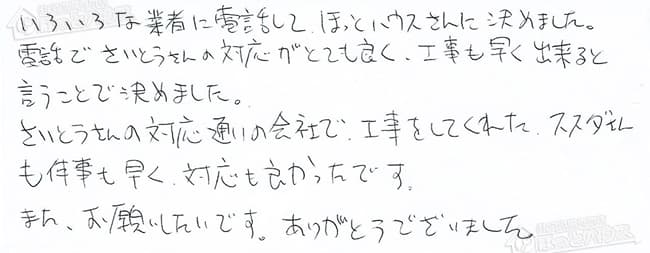 いろいろな業者に電話して、ほっとハウスさんに決めました。
電話でさいとうさんの対応がとても良く、工事も早く出来ると
言うことで決めました。
さいとうさんの対応通りの会社で、工事をしてくれた、ススダさん
も仕事も早く、対応も良かったです。
また、お願いしたいです。ありがとうございました